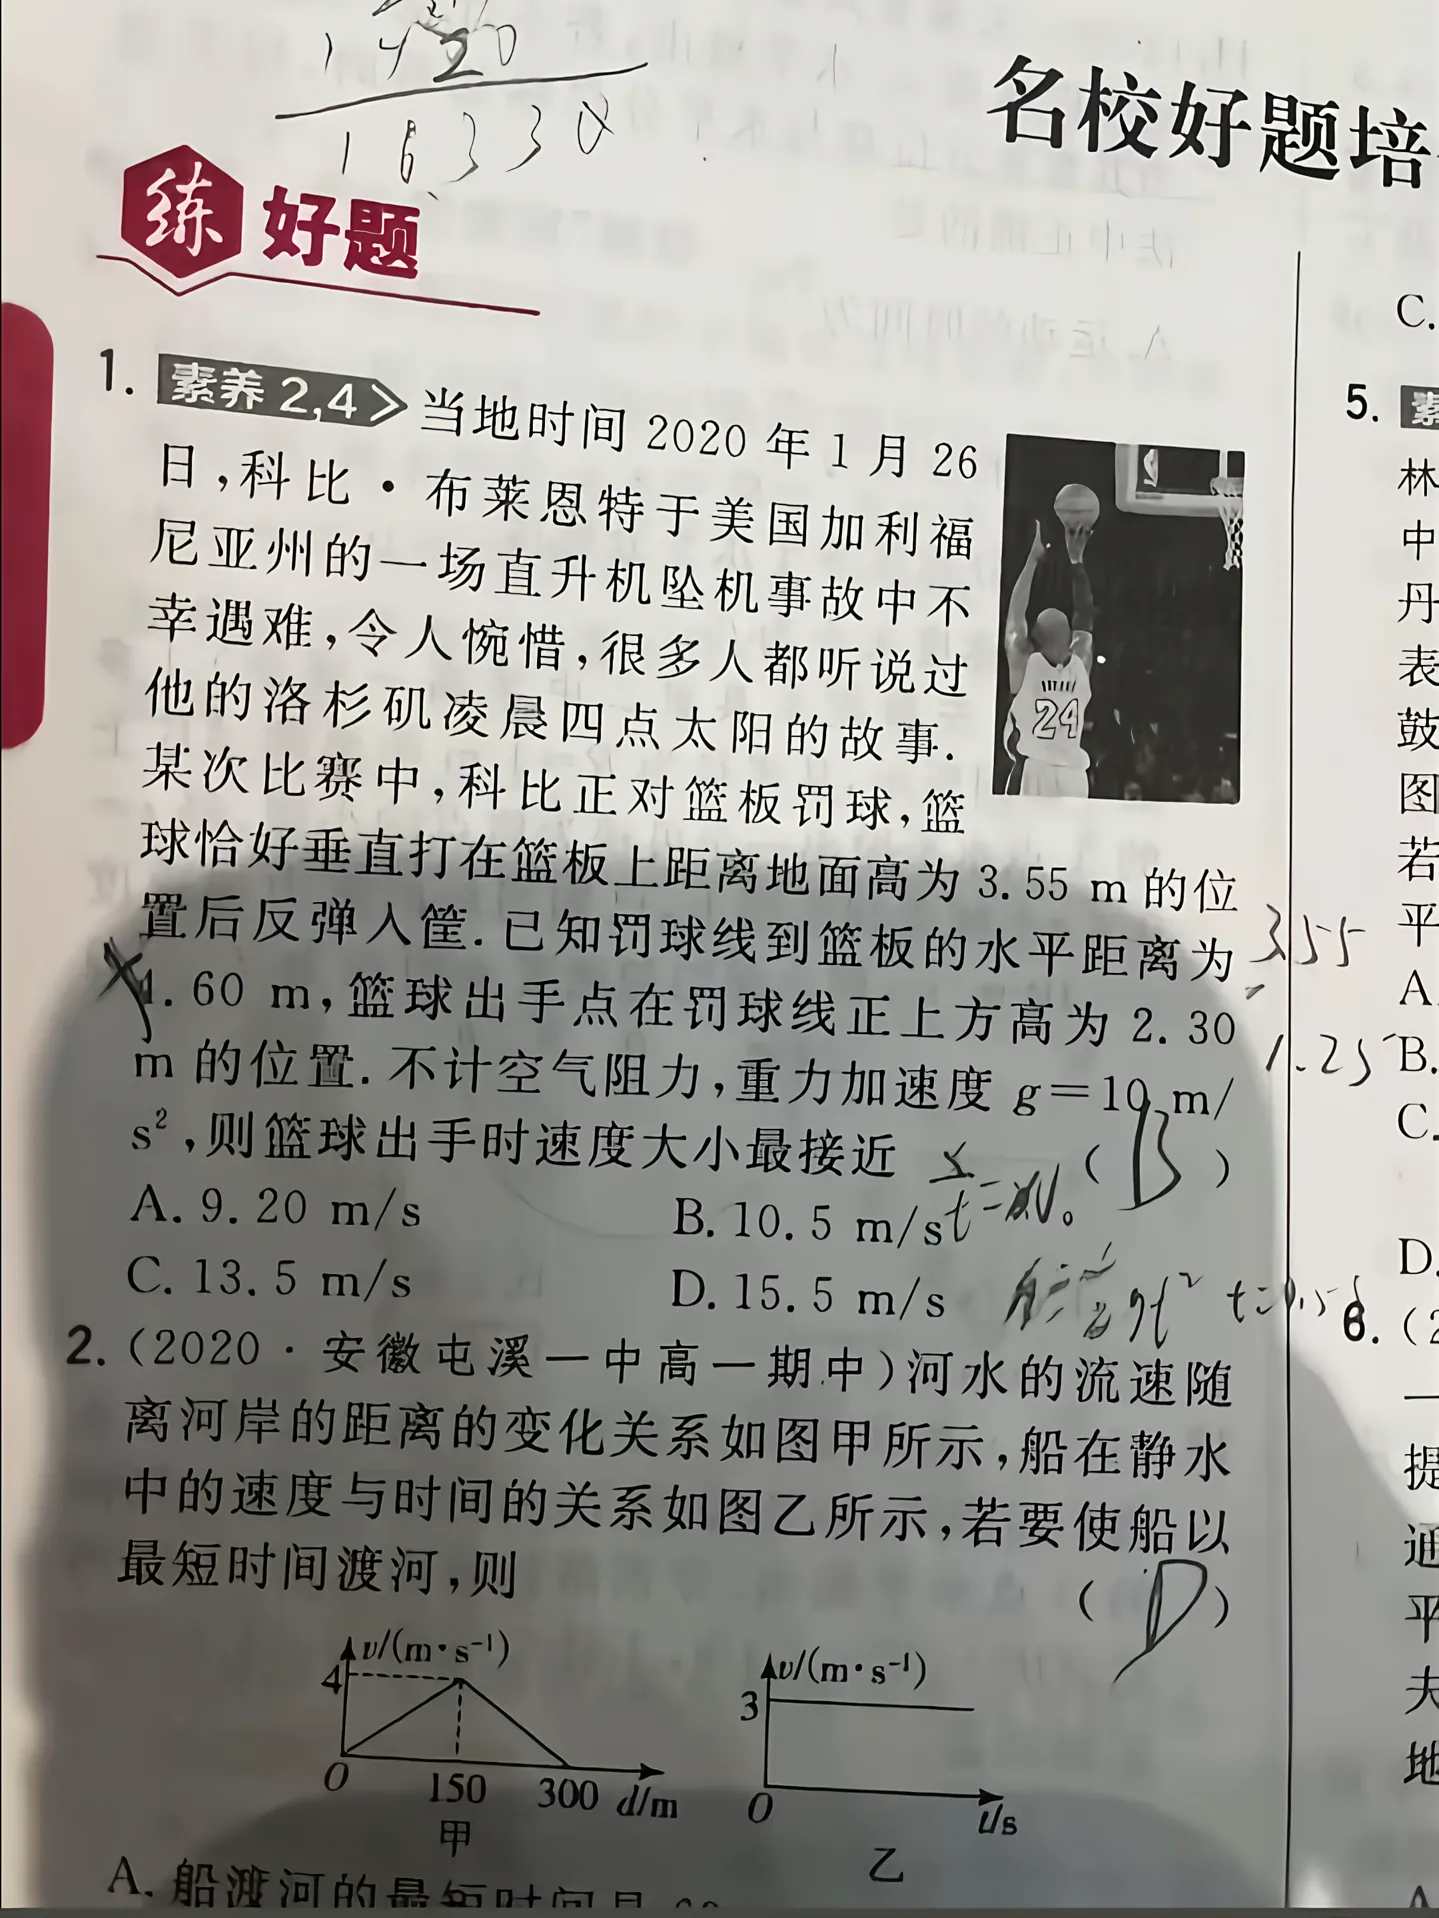 1 4 2 0
1 6 3 3 0
名校好题培
练 好题
1. 素养 2,4> 当地时间 2020 年 1 月 26
日,科比·布莱恩特于美国加利福
尼亚州的一场直升机坠机事故中不
幸遇难,令人惋惜,很多人都听说过
他的洛杉矶凌晨四点太阳的故事.
某次比赛中,科比正对篮板罚球,篮
球恰好垂直打在篮板上距离地面高为 3.55 m 的位
置后反弹入筐.已知罚球线到篮板的水平距离为
4.60 m,篮球出手点在罚球线正上方高为 2.30
m 的位置.不计空气阻力,重力加速度 g=10 m/
s²,则篮球出手时速度大小最接近 ( B )
A. 9.20 m/s B. 10.5 m/s
C. 13.5 m/s D. 15.5 m/s
24
3.55
1.25
x/t=v₀
h=½gt²
2. (2020·安徽屯溪一中高一期中)河水的流速随
离河岸的距离的变化关系如图甲所示,船在静水
中的速度与时间的关系如图乙所示,若要使船以
最短时间渡河,则 ( D )
v/(m·s⁻¹)
4
O 150 300 d/m
甲
v/(m·s⁻¹)
3
O t/s
乙
A. 船渡河的最短时间是
C.
5. 素
林
中
丹
表
鼓
图
若
平
A
B.
C.
D.
6. (2
一
提
通
平
夫
地
A